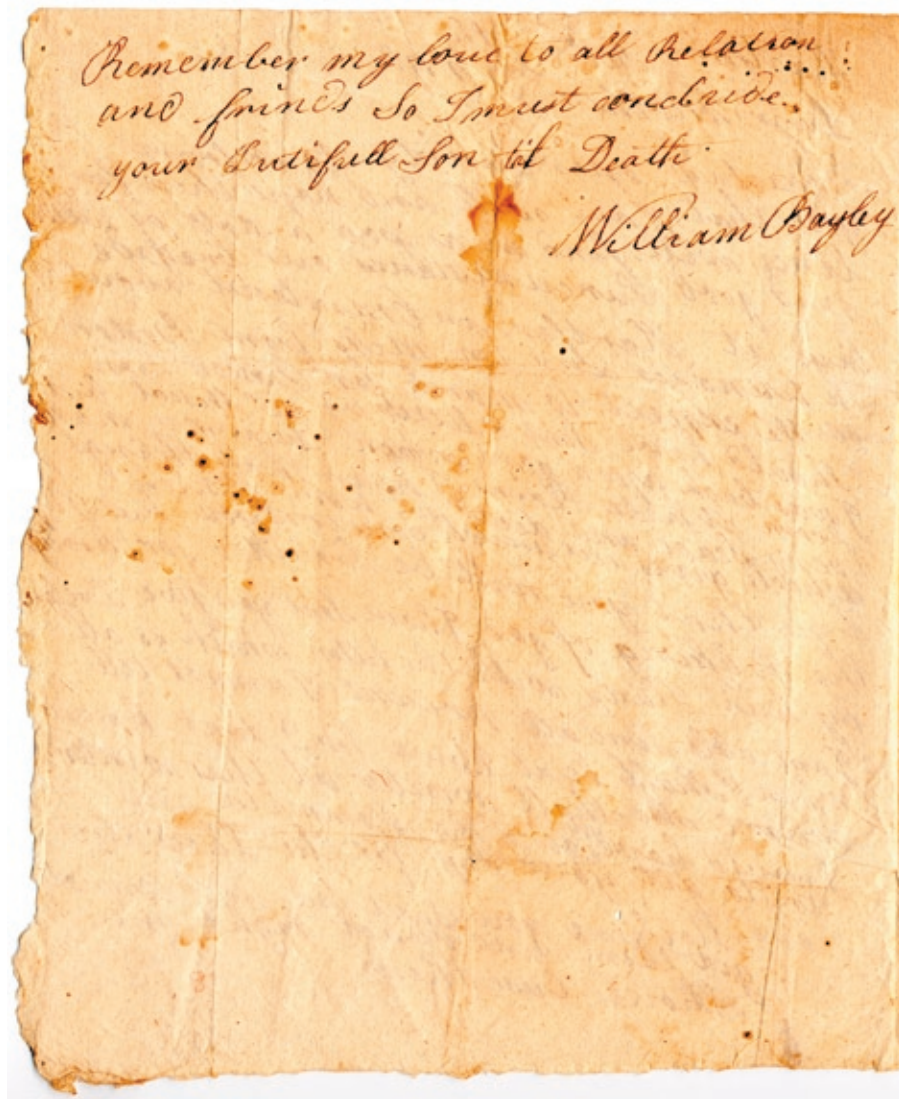 Remember my love to all Relation
and frinds So I must concbride
your Dutifull Son til Death
William Bayley